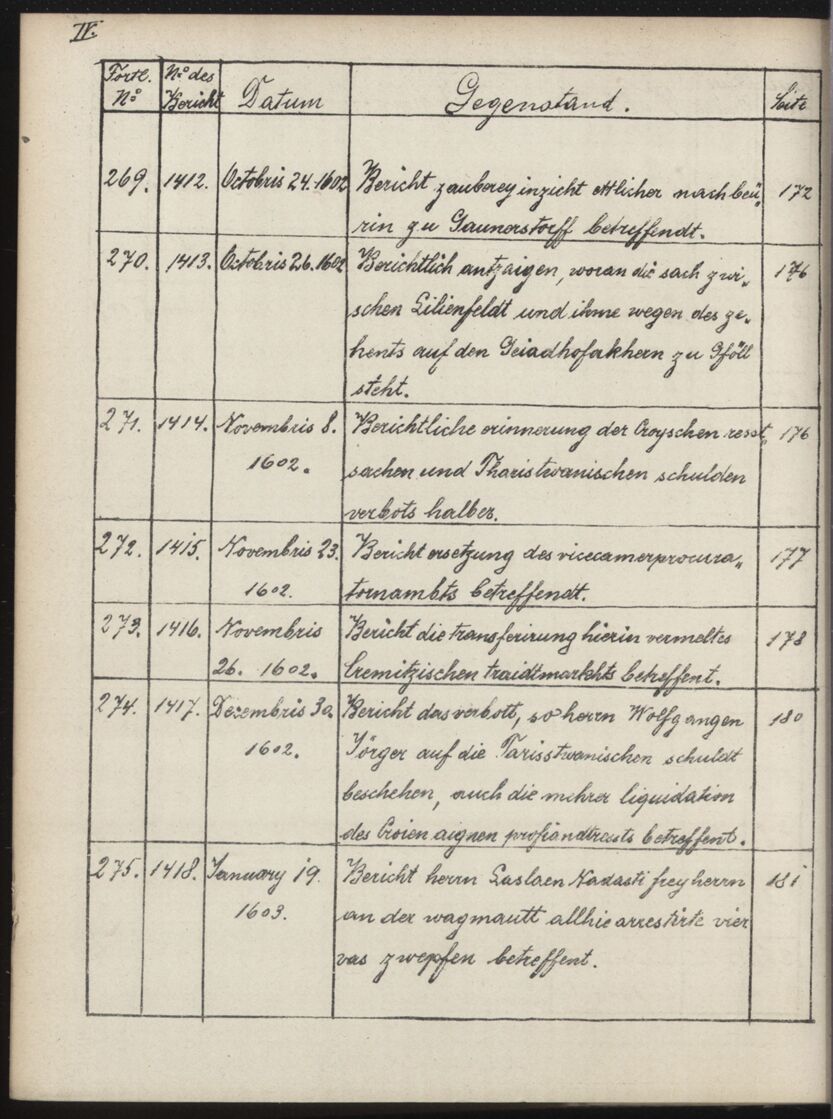 IV.
Fortl. No No des Bericht Datum Gegenstand. Seite
269. 1412. Octobris 24. 1602 Bericht zauberey inzicht ettlicher nachbeü„ 172
rin zu Gaunerstorff betreffendt.
270. 1413. Octobris 26. 1602 Berichtlich antzaigen, woran die sach zwi„ 176
schen Lilienfeldt und ihme wegen des ze„
hents auf den Geiadhofakhern zu Gföll
steht.
271. 1414. Novembris 8. Berichtliche erinnerung der Croyschen resst„ 176
1602. sachen und Tharistwanischen schulden
verbots halber.
272. 1415. Novembris 23. Bericht ersetzung des vicecamerprocura„ 177
1602. tornambts betreffendt.
273. 1416. Novembris Bericht die transferirung hierin vermeltes 178
26. 1602. Cremitzischen traidtmarkhts betreffent.
274. 1417. Dezembris 30 Bericht das verbott, so herrn Wolfgangen 180
1602. Jörger auf die Tarisstwanischen schuldt
beschehen, auch die mehrer liquidation
des Croien aignen profiandtrests betreffent.
275. 1418. January 19. Bericht herrn Laslaen Nadasti freyherrn 181
1603. an der wagmautt allhie arrestirte vier
vas zwepfen betreffent.